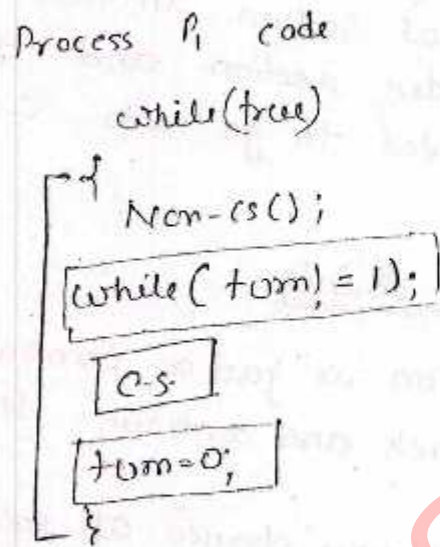 Process P₁ code
while(true)
{
Non-CS();
while(turn != 1);
C.S.
turn=0;
}